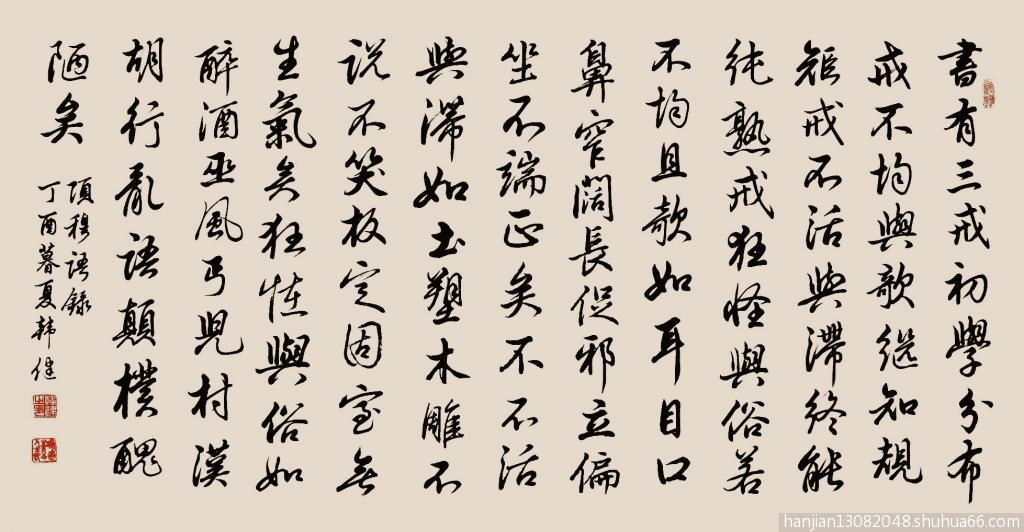 書有三戒初學分布
戒不均與欹継知規
矩戒不活與滯終能
純熟戒狂怪與俗若
不均且欹如耳目口
鼻窄闊長促邪立偏
坐不端正矣不不活
與滯如土塑木雕不
说不笑板定固窒無
生氣矣狂怪與俗如
醉酒巫風丐兒村漢
胡行亂語顛樸醜
陋矣
項穆語錄
丁酉暮夏韩健
hanjian13082048.shuhua66.com